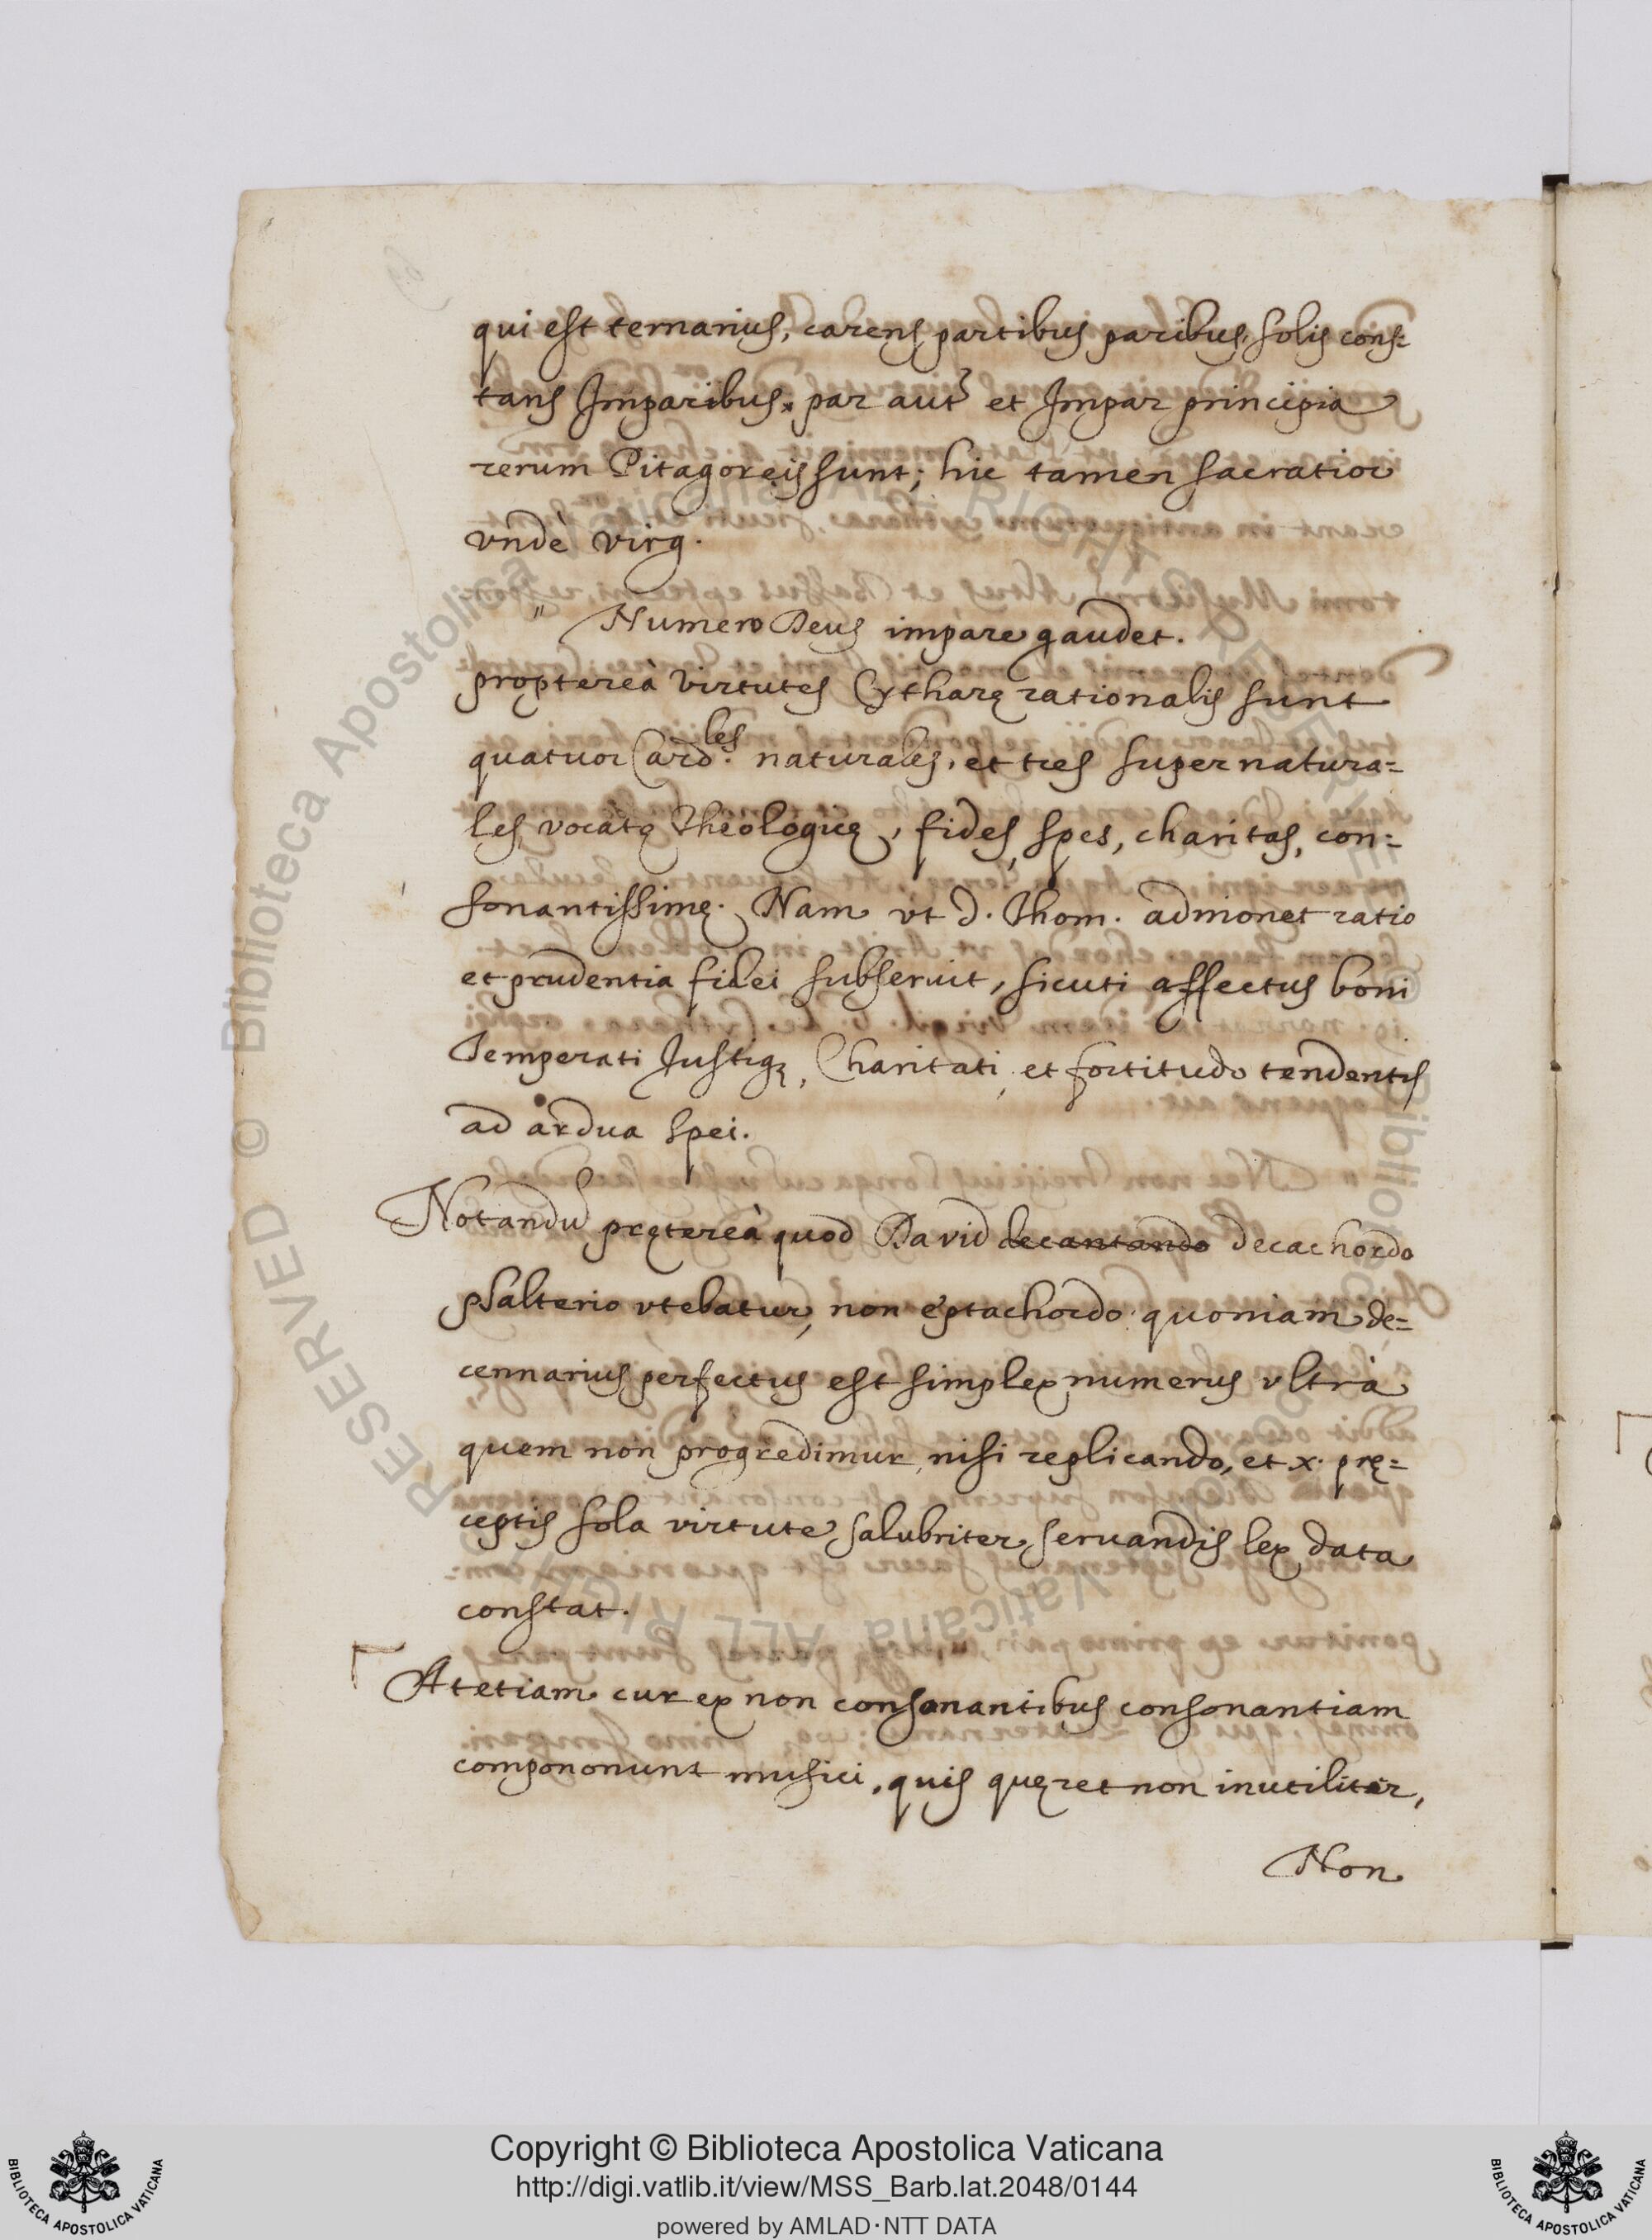 qui est ternarius, carens partibus paribus, solis cons=
tans Imparibus. par aut et Impar principia
rerum Pitagoreis sunt; hic tamen sacratior
vndè virg.
" Numero Deus impare gaudet.
proptereà virtutes Cytharę rationalis sunt
quatuor Cardles. naturales, et tres supernatura=
les, vocatę Theologicę, fides, spes, charitas, con=
sonantissimę. Nam vt d. Thom. admonet ratio
et prudentia fidei subseruit, sicuti affectus boni
Temperati Justiq3, Charitati, et fortitudo tendentis
ad ardua spei.
Notandũ pręterеà quod David decantando decachordo
psalterio vtebatur, non eptachordo quoniam de=
cennarius perfectus est simplex numerus vltrà
quem non progredimur, nisi replicando, et x. prę=
ceptis sola virtute salubriter seruandis lex data
constat.
At etiam cur ex non consonantibus consonantiam
componunt musici, quis quęret non inutiliter,
Non
RESERVED © Biblioteca Apostolica Vaticana ALL RIGHT
Copyright © Biblioteca Apostolica Vaticana
http://digi.vatlib.it/view/MSS_Barb.lat.2048/0144
powered by AMLAD·NTT DATA
BIBLIOTECA APOSTOLICA VATICANA
BIBLIOTECA APOSTOLICA VATICANA